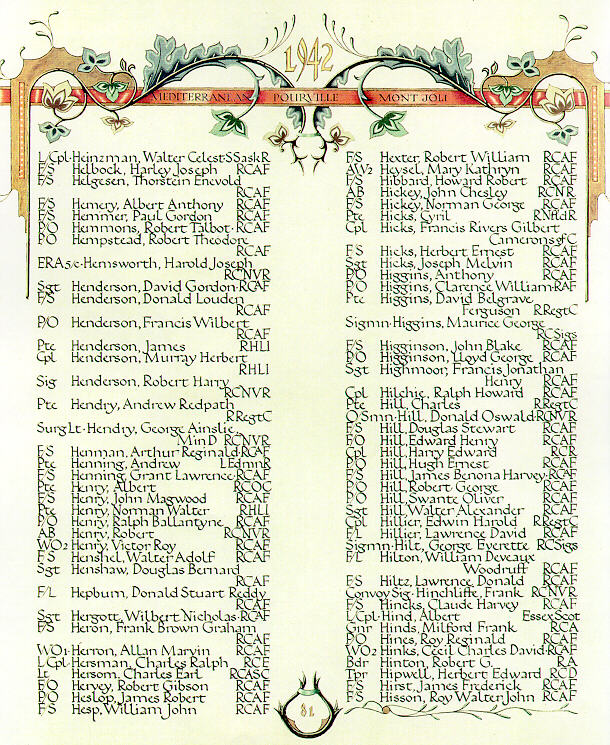 1942
MEDITERRANEAN POURVILLE MONT JOLI
L/Cpl·Heinzman, Walter Celest·SSaskR
F/S Helbock, Harley Joseph RCAF
F/S Helgesen, Thorstein Enevold
RCAF
F/S Hemery, Albert Anthony RCAF
F/S Hemmer, Paul Gordon RCAF
P/O Hemmons, Robert Talbot·RCAF
P/O Hempstead, Robert Theodore
RCAF
ERA 5/c·Hemsworth, Harold Joseph
RCNVR
Sgt Henderson, David Gordon·RCAF
F/S Henderson, Donald Louden
RCAF
P/O Henderson, Francis Wilbert
RCAF
Pte Henderson, James RHLI
Cpl Henderson, Murray Herbert
RHLI
Sig Henderson, Robert Harry
RCNVR
Pte Hendry, Andrew Redpath
RRegtC
Surg Lt·Hendry, George Ainslie
Min D RCNVR
F/S Henman, Arthur Reginald·RCAF
Pte Henning, Andrew LEdmnR
F/S Henning, Grant Lawrence·RCAF
Pte Henry, Albert RCOC
F/S Henry, John Magwood RCAF
Pte Henry, Norman Walter RHLI
P/O Henry, Ralph Ballantyne RCAF
AB Henry, Robert RCNVR
WO2 Henry, Victor Roy RCAF
F/S Henshel, Walter Adolf RCAF
Sgt Henshaw, Douglas Bernard
RCAF
F/L Hepburn, Donald Stuart Reddy
RCAF
Sgt Hergott, Wilbert Nicholas·RCAF
F/S Heron, Frank Brown Graham
RCAF
WO1·Herron, Allan Marvin RCAF
L/Cpl·Hersman, Charles Ralph RCE
Lt Hersom, Charles Earl RCASC
F/O Hervey, Robert Gibson RCAF
P/O Heslop, James Robert RCAF
F/S Hesp, William John RCAF
F/S Hexter, Robert William RCAF
AW2 Heysel, Mary Kathryn RCAF
F/S Hibbard, Howard Robert RCAF
AB Hickey, John Chesley RCNR
F/S Hickey, Norman George RCAF
Pte Hicks, Cyril RNfldR
Cpl Hicks, Francis Rivers Gilbert
Camerons of C
F/S Hicks, Herbert Ernest RCAF
Sgt Hicks, Joseph Melvin RCAF
P/O Higgins, Anthony RCAF
P/O Higgins, Clarence William·RAF
Pte Higgins, David Belgrave
Ferguson RRegtC
Sigmn·Higgins, Maurice George
RCSigs
F/S Higginson, John Blake RCAF
P/O Higginson, Lloyd George RCAF
Sgt Highmoor, Francis Jonathan
Henry RCAF
Cpl Hilchie, Ralph Howard RCAF
Pte Hill, Charles RRegtC
O/Smn·Hill, Donald Oswald·RCNVR
F/S Hill, Douglas Stewart RCAF
F/O Hill, Edward Henry RCAF
Cpl Hill, Harry Edward RCR
P/O Hill, Hugh Ernest RCAF
F/S Hill, James Benona Harvey·RCAF
P/O Hill, Robert George RCAF
P/O Hill, Swante Oliver RCAF
Sgt Hill, Walter Alexander RCAF
Cpl Hillier, Edwin Harold RRegtC
F/L Hillier, Lawrence David RCAF
Sigmn·Hilt, George Everette RCSigs
F/L Hilton, William Deveaux
Woodruff RCAF
F/S Hiltz, Lawrence, Donald RCAF
Convoy Sig·Hinchliffe, Frank RCNVR
F/S Hincks, Claude Harvey RCAF
L/Cpl·Hind, Albert EssexScot
Gnr Hinds, Milford Frank RCA
P/O Hines, Roy Reginald RCAF
WO2 Hinks, Cecil Charles David·RCAF
Bdr Hinton, Robert G. RA
Tpr Hipwell, Herbert Edward RCD
F/S Hirst, James Frederick RCAF
F/S Hisson, Roy Walter John RCAF
81